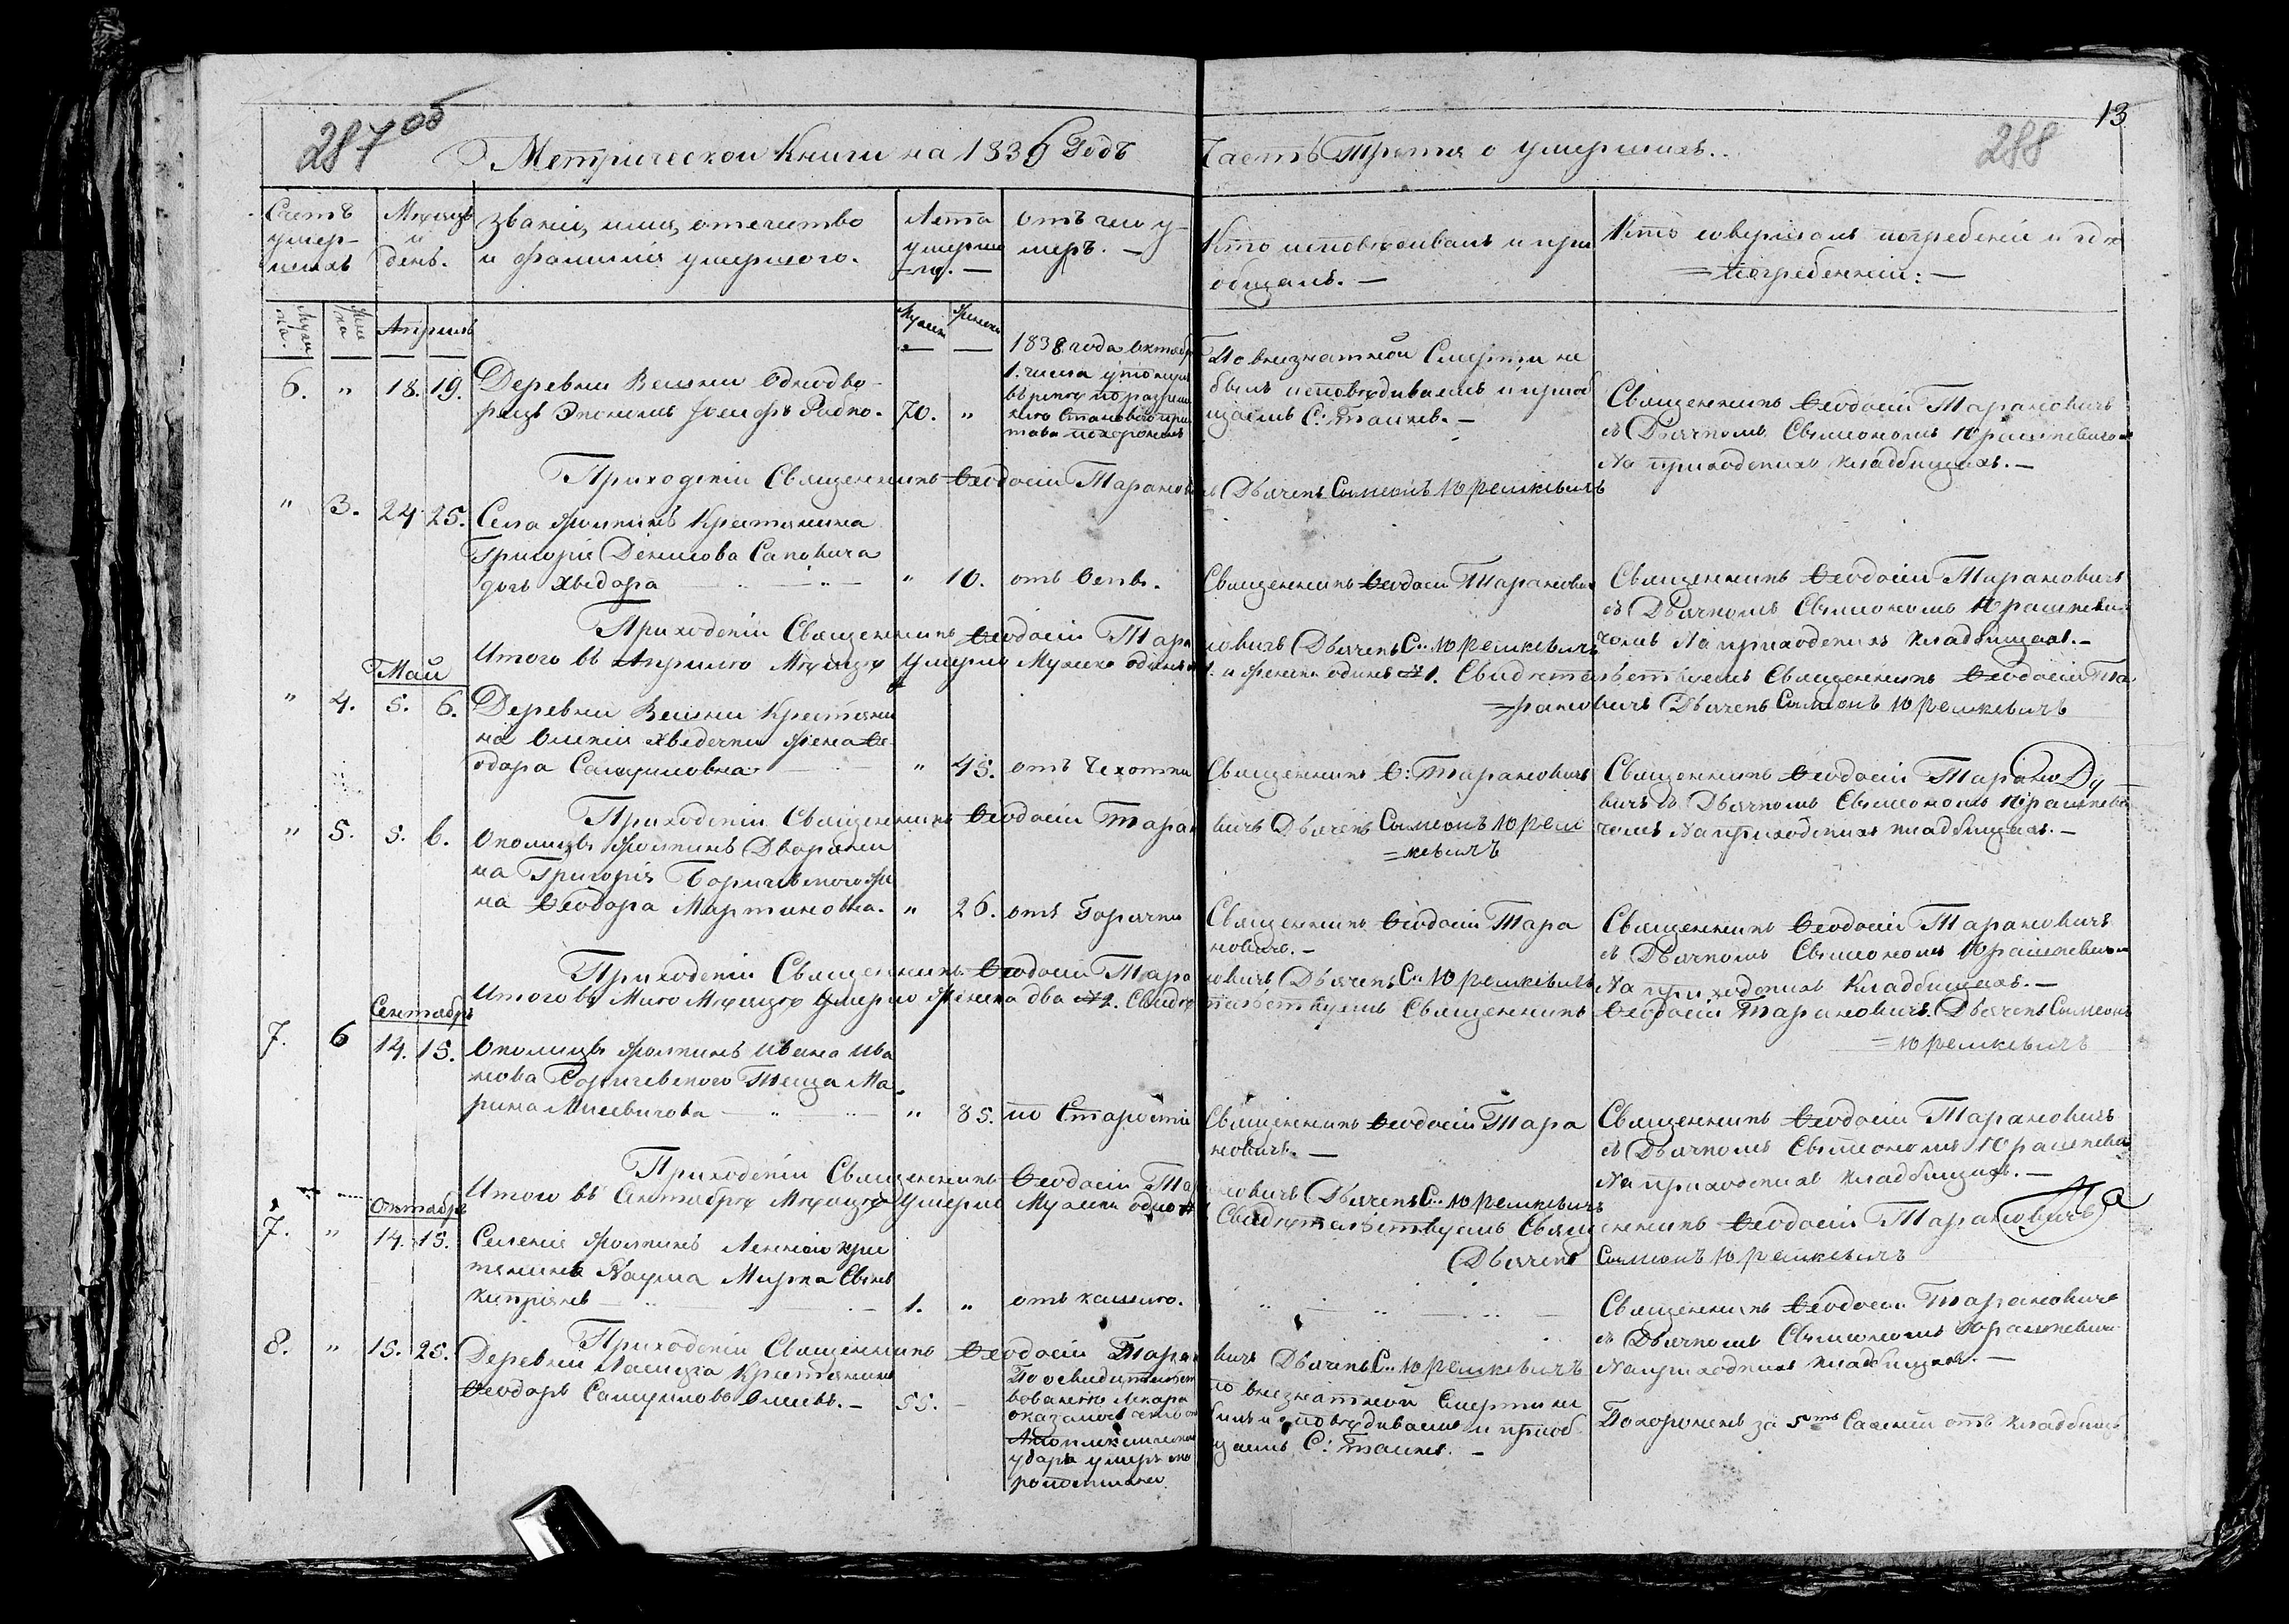 287 об
Метрической Книги на 1839 Годъ
Часть Третья о умершихъ.
288
13
Счетъ умер-шихъ
Мѣсяцъ и день.
званіе, имя, отечество
и фамилія умершого.
Лета умерша-го. —
отъ чего у-
меръ. —
Кто исповѣдывалъ и прі
общалъ. —
Кто совершалъ погребеніе и где
погребенны: —
Апрель
6. „ 18. 19. Деревни Вешни Однодво-
рецъ 70. „
1838 года Октяб
1. числа утонул
Становаго при
става похороненъ
По внезнатной Смерти не
былъ исповѣдываемъ и приоб
щаемъ С: таинъ. —
Священникъ Ѳеодосій Тарановичъ
съ Дьячкомъ Сѵмеономъ Юрашкевичомъ
На приходскихъ кладбищахъ. —
Приходскій Священникъ Ѳеодосій Таранов
Дьячекъ Сѵмеонъ Юрешкевичъ
„ 3. 24 25. Села Крестянина
Григорія Денисова Саповича
дочь Хведора „ 10. отъ Оспы.
Священникъ Ѳеодосій Тарановичъ
Священникъ Ѳеодосій Тарановичъ
съ Дьячкомъ Сѵмеономъ Юрашкеви
чомъ На приходскихъ кладбищахъ. —
Приходскій Священникъ Ѳеодосій Тара
новичъ Дьячекъ С.. Юрешкевичъ
Итого въ Апрелю Мѣсяцѣ умерло Мужеска одинъ
1. и женска одинъ 1. Свидѣтельствуемъ Священникъ Ѳеодосій Та
=рановичъ Дьячекъ Сѵмеонъ Юрешкевичъ
Май
„ 4. 5. 6. Деревни Вешни Крестяни
на Хведечки жена Ѳе
одора Самуиловна „ 45. отъ Чехотки
Священникъ Ѳ: Тарановичъ
Священникъ Ѳеодосій Тарано
вичъ съ Дьячкомъ Сѵмеономъ Юрашкеви
чомъ На приходскихъ кладбищахъ. —
Приходскій Священникъ Ѳеодосій Таран
вичъ Дьячекъ Сѵмеонъ Юреш
=кевичъ
„ 5. 5. 6. Околицы Дворяни
на Григорія же
на Ѳеодора Мартиновна. „ 26. отъ Горячки
Священникъ Ѳеодосій Тара
новичъ. —
Священникъ Ѳеодосій Тарановичъ
съ Дьячкомъ Сѵмеономъ Юрашкевичом
На приходскихъ Кладбищахъ. —
Приходскій Священникъ Ѳеодосій Тара
новичъ Дьячекъ С.. Юрешкевичъ
Итого въ Маю Мѣсяцѣ умерло женска два 2. Свидѣ
тельствуемъ Священникъ Ѳеодосій Тарановичъ. Дьячекъ Сѵмеонъ
=Юрешкевичъ
Сентябрь
7. 6 14. 15. Околицы Ивана Ива
нова Теща Ма
рина „ 85. по Старости
Священникъ Ѳеодосій Тара
новичъ. —
Священникъ Ѳеодосій Тарановичъ
съ Дьячкомъ Сѵмеономъ Юрашкеви
На приходскихъ кладбищахъ. —
Приходскій Священникъ Ѳеодосій Та
новичъ Дьячекъ С.. Юрешкевичъ
Итого въ Сентябрѣ Мѣсяцѣ умерло Мужеска одно
Свидѣтельствуемъ Священникъ Ѳеодосій Тарановичъ
Дьячекъ Сѵмеонъ Юрешкевичъ
Октябрь
7. „ 14. 15. Селенія
Наума Мирка Сынъ
Кипріянъ 1. „ отъ кашлю.
Священникъ Ѳеодосій Тарановичъ
съ Дьячкомъ Сѵмеономъ Юрашкевич
На приходскихъ кладбищахъ. —
Приходскій Священникъ Ѳеодосій Таран
вичъ Дьячекъ С.. Юрешкевичъ
8. „ 15. 25. Деревни Крестянинъ
Ѳеодоръ Самуиловъ 55.
По освидетельст
вованію Лекара
оказалось что онъ
удара умеръ
по внезнатной Смерти не
былъ исповѣдываемъ и приоб
щаемъ С: таинъ. —
Похороненъ за 5ть Саженъ отъ кладбищъ